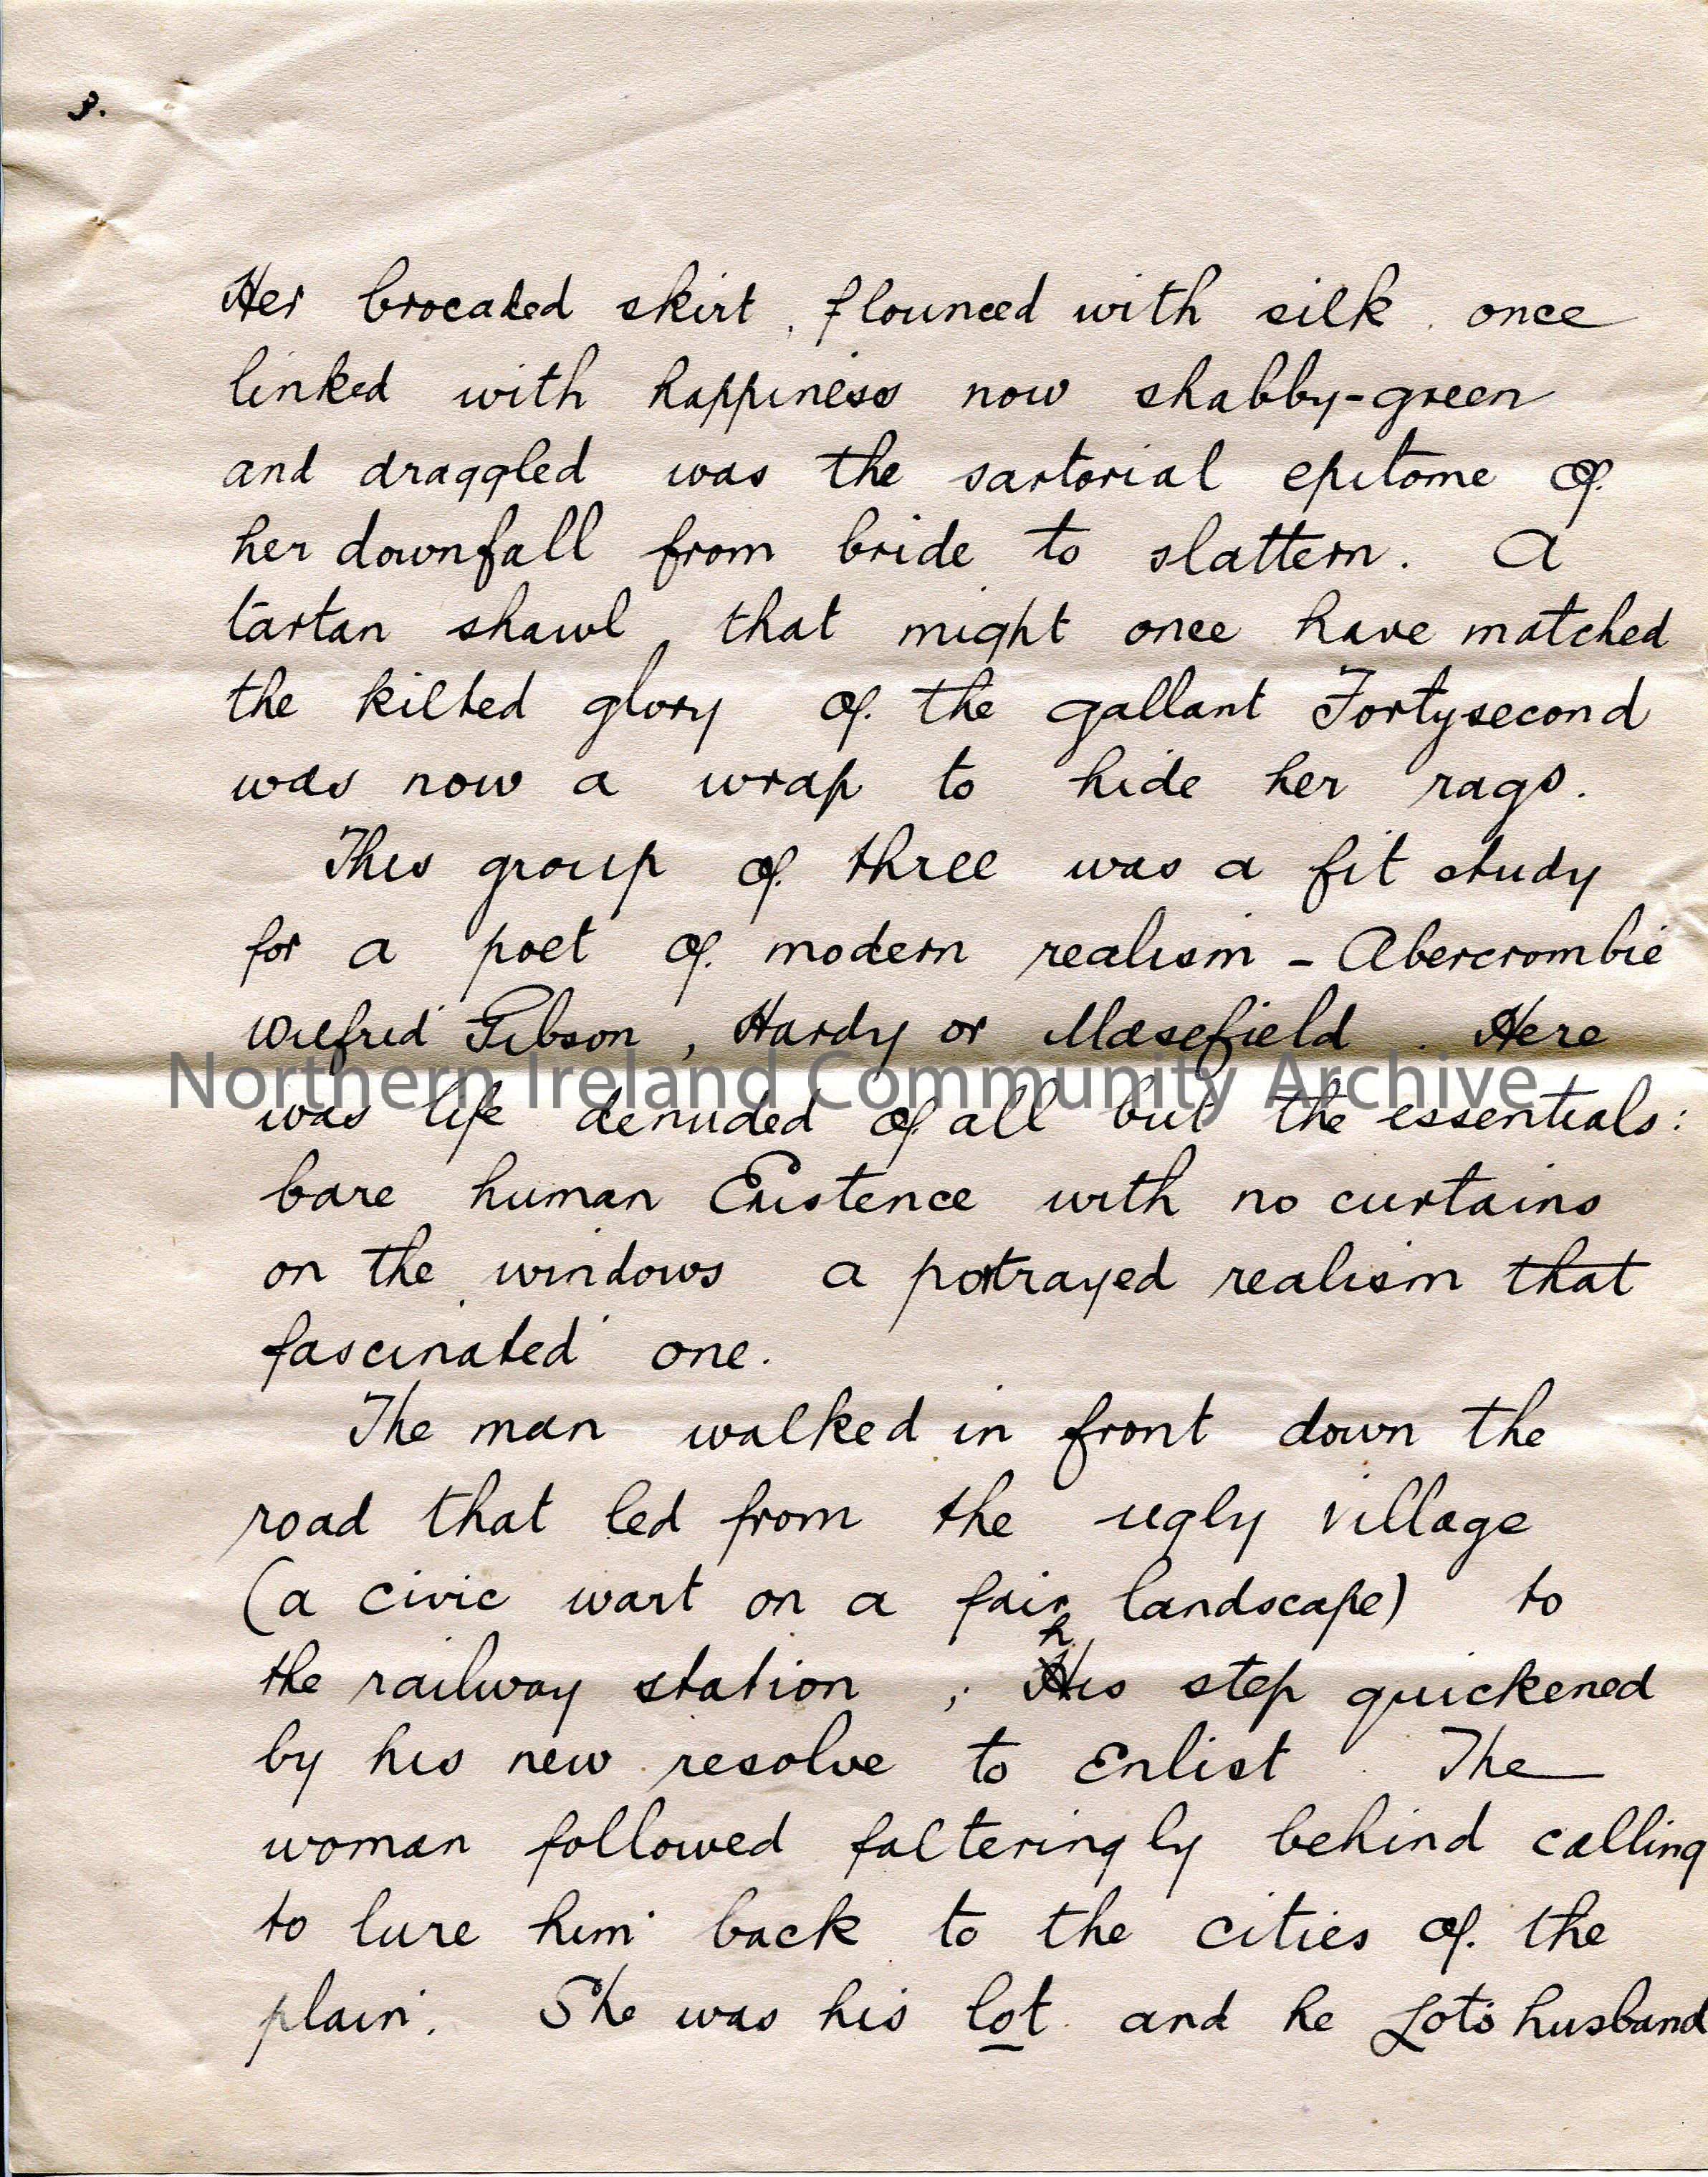 3.
Her brocaded skirt, flounced with silk once
linked with happiness now shabby-green
and draggled was the sartorial epitome of
her downfall from bride to slattern. A
tartan shawl, that might once have matched
the kilted glory of the gallant Fortysecond
was now a wrap to hide her rags.
This group of three was a fit study
for a poet of modern realism - Abercrombie
Wilfrid Gibson, Hardy or Masefield. Here
Northern Ireland Community Archive
was life denuded of all but the essentials:
bare human Existence with no curtains
on the windows a portrayed realism that
fascinated one.
The man walked in front down the
road that led from the ugly village
(a civic wart on a fair landscape) to
the railway station; his step quickened
by his new resolve to Enlist. The
woman followed falteringly behind calling
to lure him back to the cities of the
plain. She was his lot and he Lot's husband